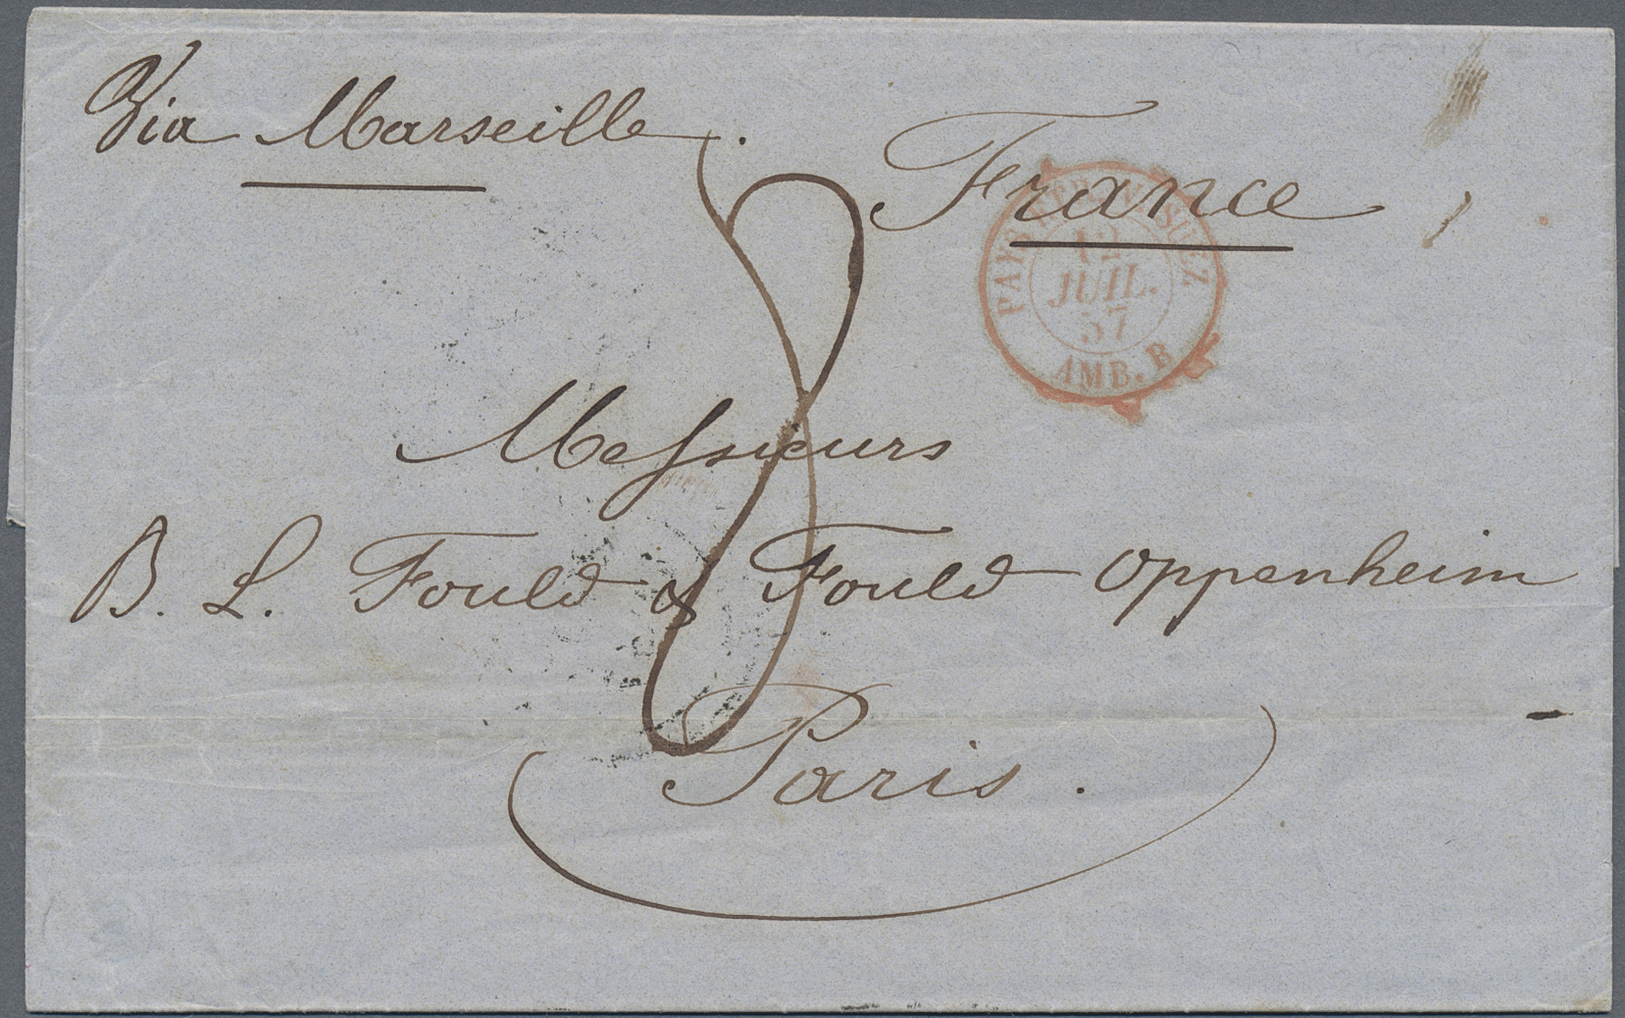 Via Marseille.
France
PAYS ETR. V. SUEZ
12
JUIL.
57
AMB. B
8
Messieurs
B. L. Fould & Fould Oppenheim
Paris.